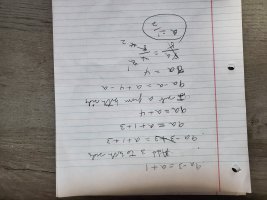 9a-3=a+1
Add 3 to both sides
9a-3+3=a+1+3
9a=a+1+3
9a=a+4
Sub a from both sides
9a-a=a+4-a
8a=4
8a/8=4/8
a=1/2